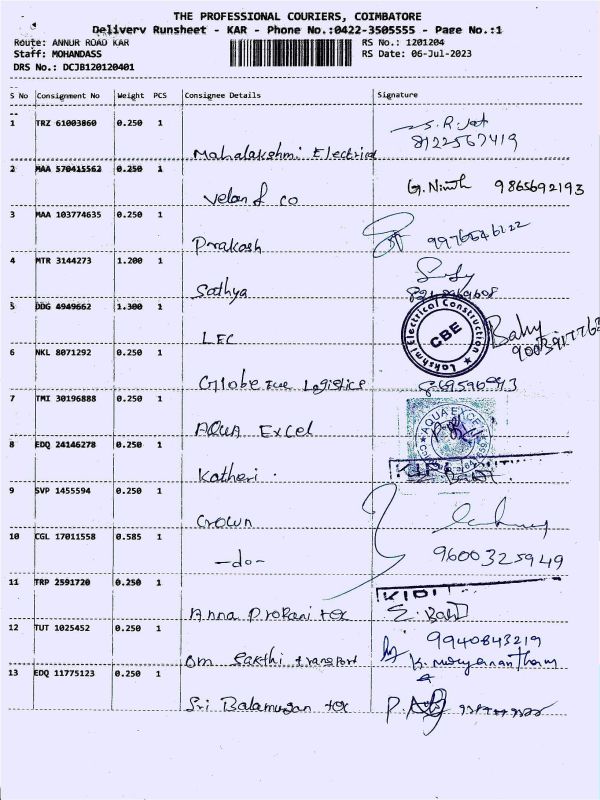 THE PROFESSIONAL COURIERS, COIMBATORE
Delivery Runsheet - KAR - Phone No.:0422-3505555 - Page No.:1
Route: ANNUR ROAD KAR RS No.: 1201204
Staff: MOHANDASS RS Date: 06-Jul-2023
DRS No.: DCJB120120401
S No Consignment No Weight PCS Consignee Details Signature
1 TRZ 61003860 0.250 1
Mahalakshmi Electrical
8122567419
2 MAA 570415562 0.250 1
Velan & co
9865692193
3 MAA 103774635 0.250 1
Prakash
4 MTR 3144273 1.200 1
Sathya
5 DDG 4949662 1.300 1
LEC
Lakshmi Electrical Construction
CBE
6 NKL 8071292 0.250 1
Logistics
7 TMI 30196888 0.250 1
AQUA Excel
AQUA EXCEL
8 EDQ 24146278 0.250 1
Katheri
9 SVP 1455594 0.250 1
Crown
10 CGL 17011558 0.585 1
-do-
9600325949
11 TRP 2591720 0.250 1
Anna
12 TUT 1025452 0.250 1
Om Sakthi transport
9940843219
13 EDQ 11775123 0.250 1
Sri Balamurugan tex